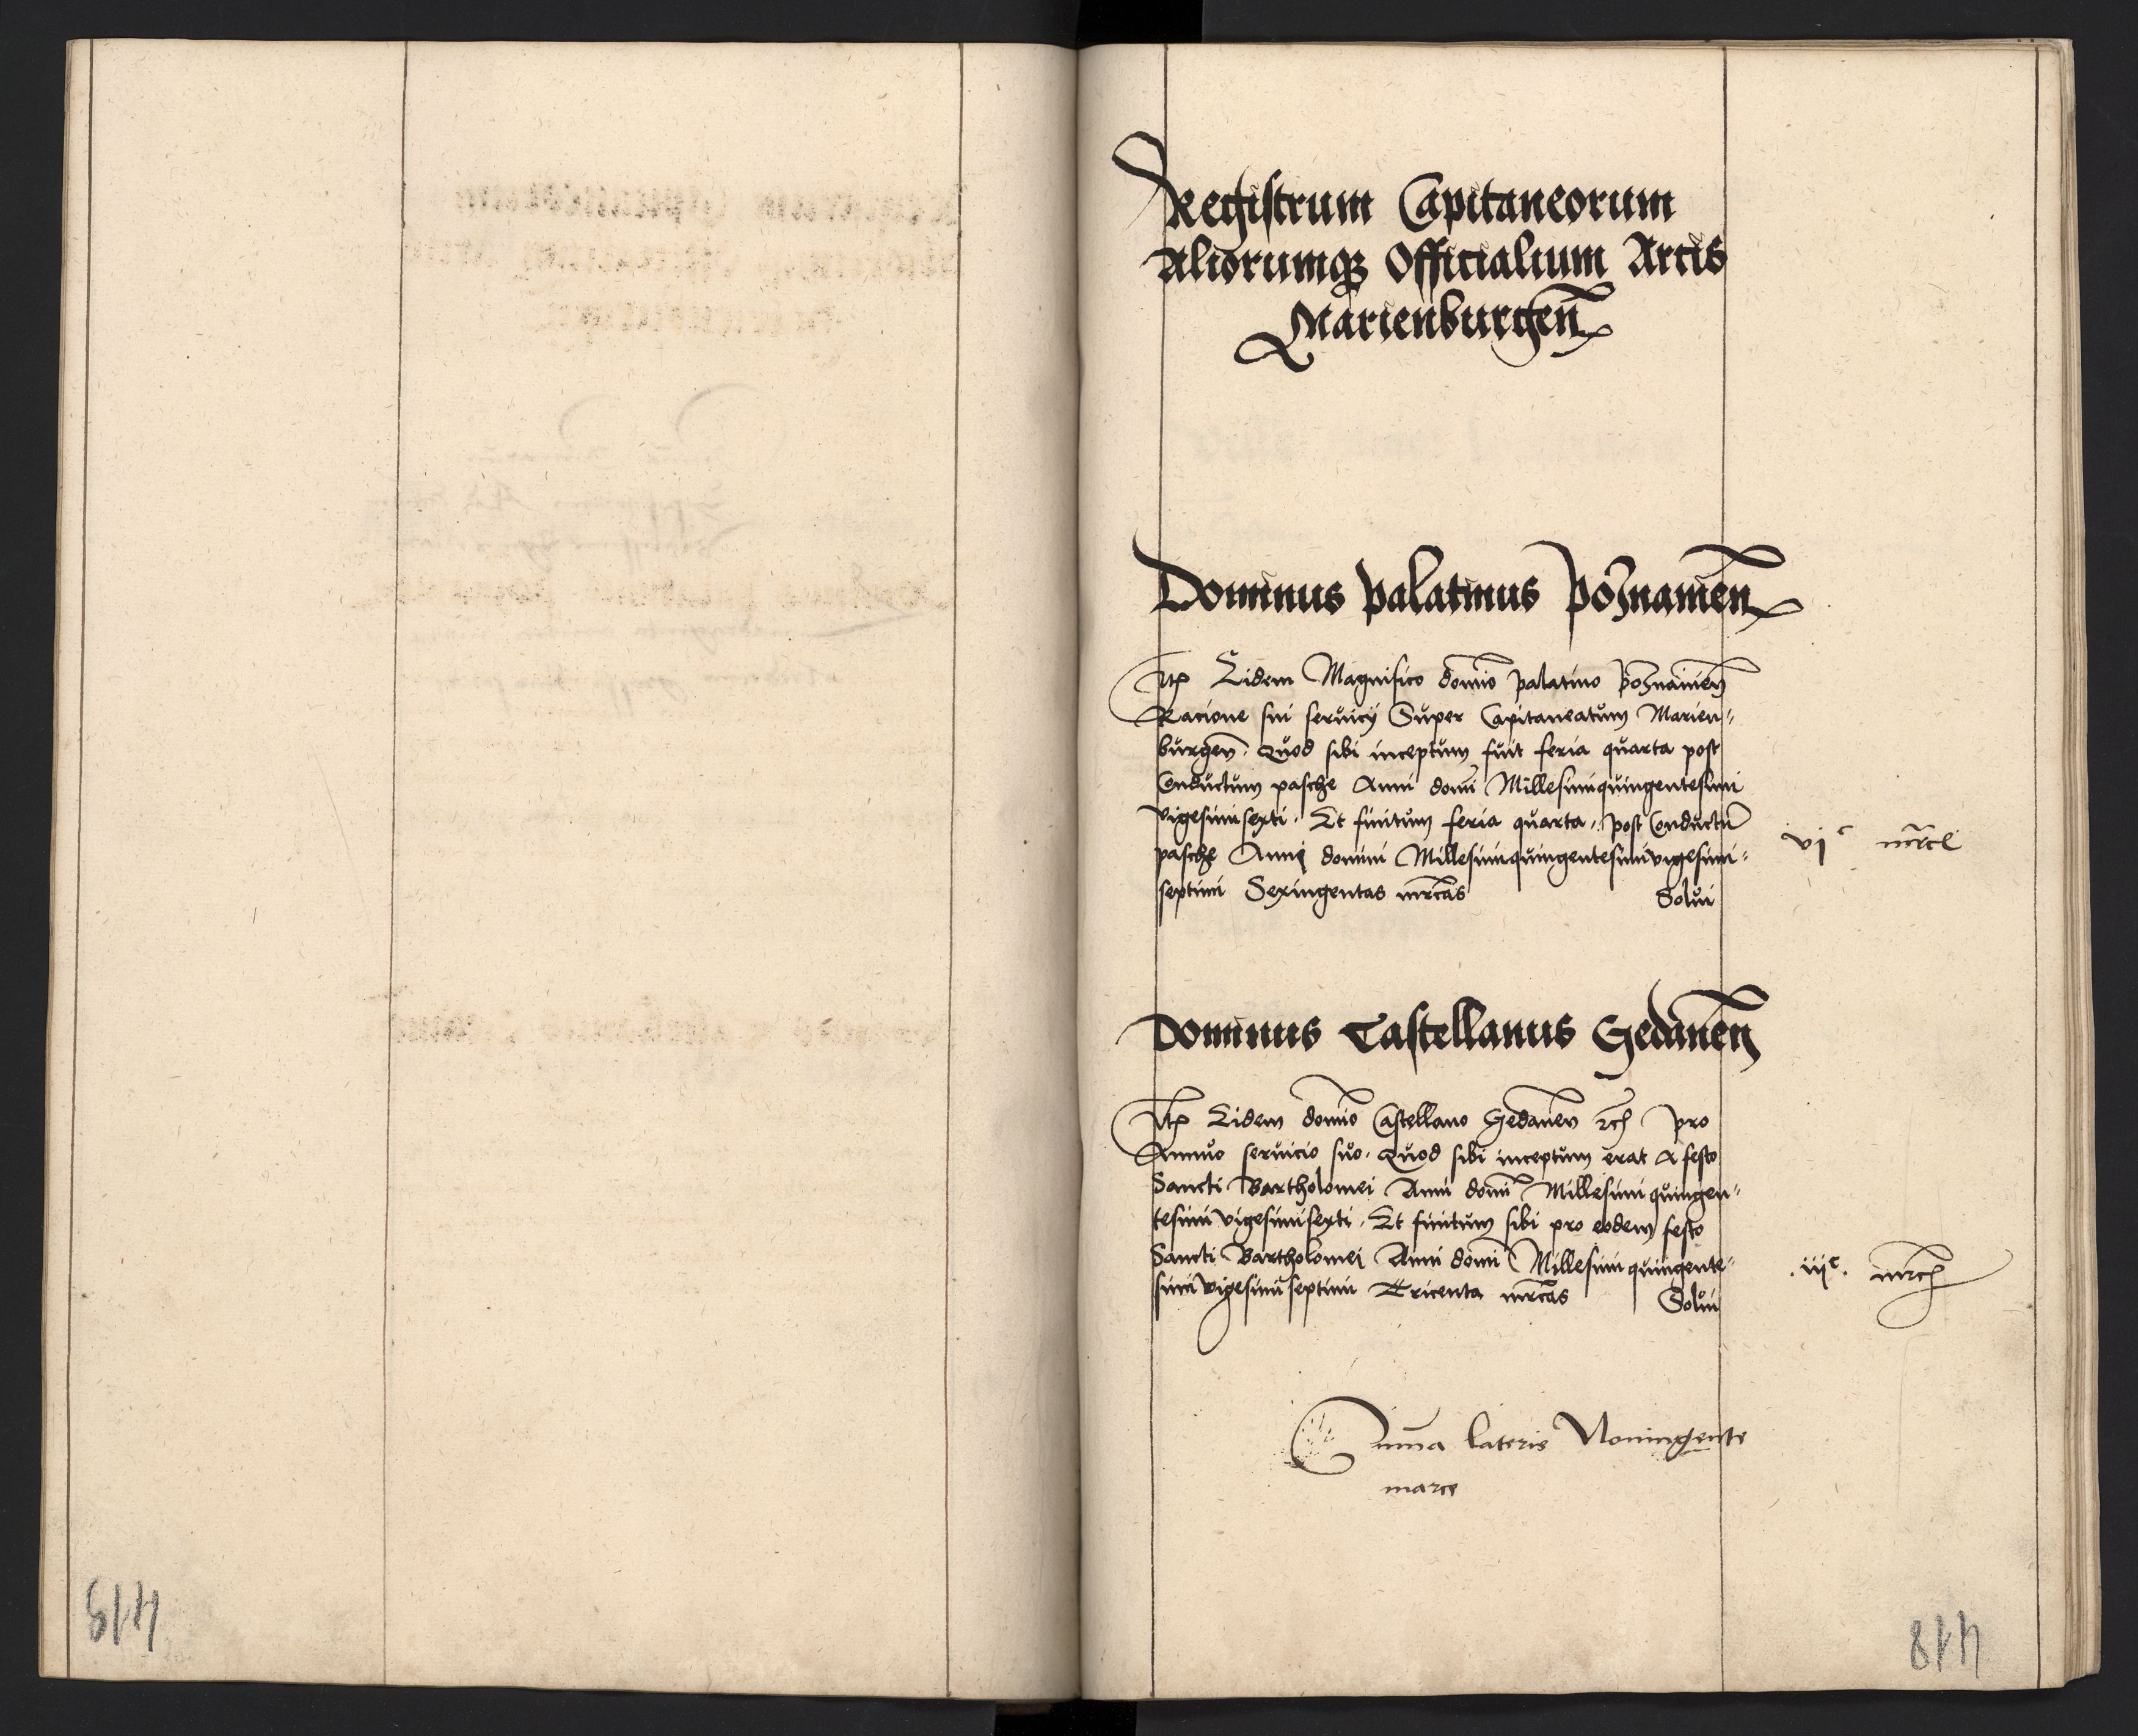 Registrum Capitaneorum
Aliorumq₃ Officialium Arcis
Marienburgen̄
Dominus palatinus poznanien̄
Itꝫ Eidem Magnifico domīo palatino poznanien̄
Racione sui seruicij Super Capitaneatum Marien⸗
burgen̄. Quod sibi inceptum fuit feria quarta post
Conductum pasche Anni domī Millesimiquingentesimi
vigesimisexti. Et finitum feria quarta. post Conductū
pasche Anni domini Millesimiquingentesimivigesimi⸗
septimi Sexingentas mrcas
Solui
vjᶜ mrce
Dominus Castellanus Gedanen̄
Itꝫ Eidem domīo Castellano Gedanen̄ rc̄ pro
Annuo seruicio suo. Quod sibi inceptum erat A festo
Sancti Bartholomei Anni domī Millesimi quingen⸗
tesimi vigesimisexti. Et finitum sibi pro eodem festo
Sancti Bartholomei Anni domī Millesimi quingente⸗
simi vigesimiseptimi Tricenta mrcas
Solui
.iijᶜ. mrc
Summa lateris Noningente
marce
419
418